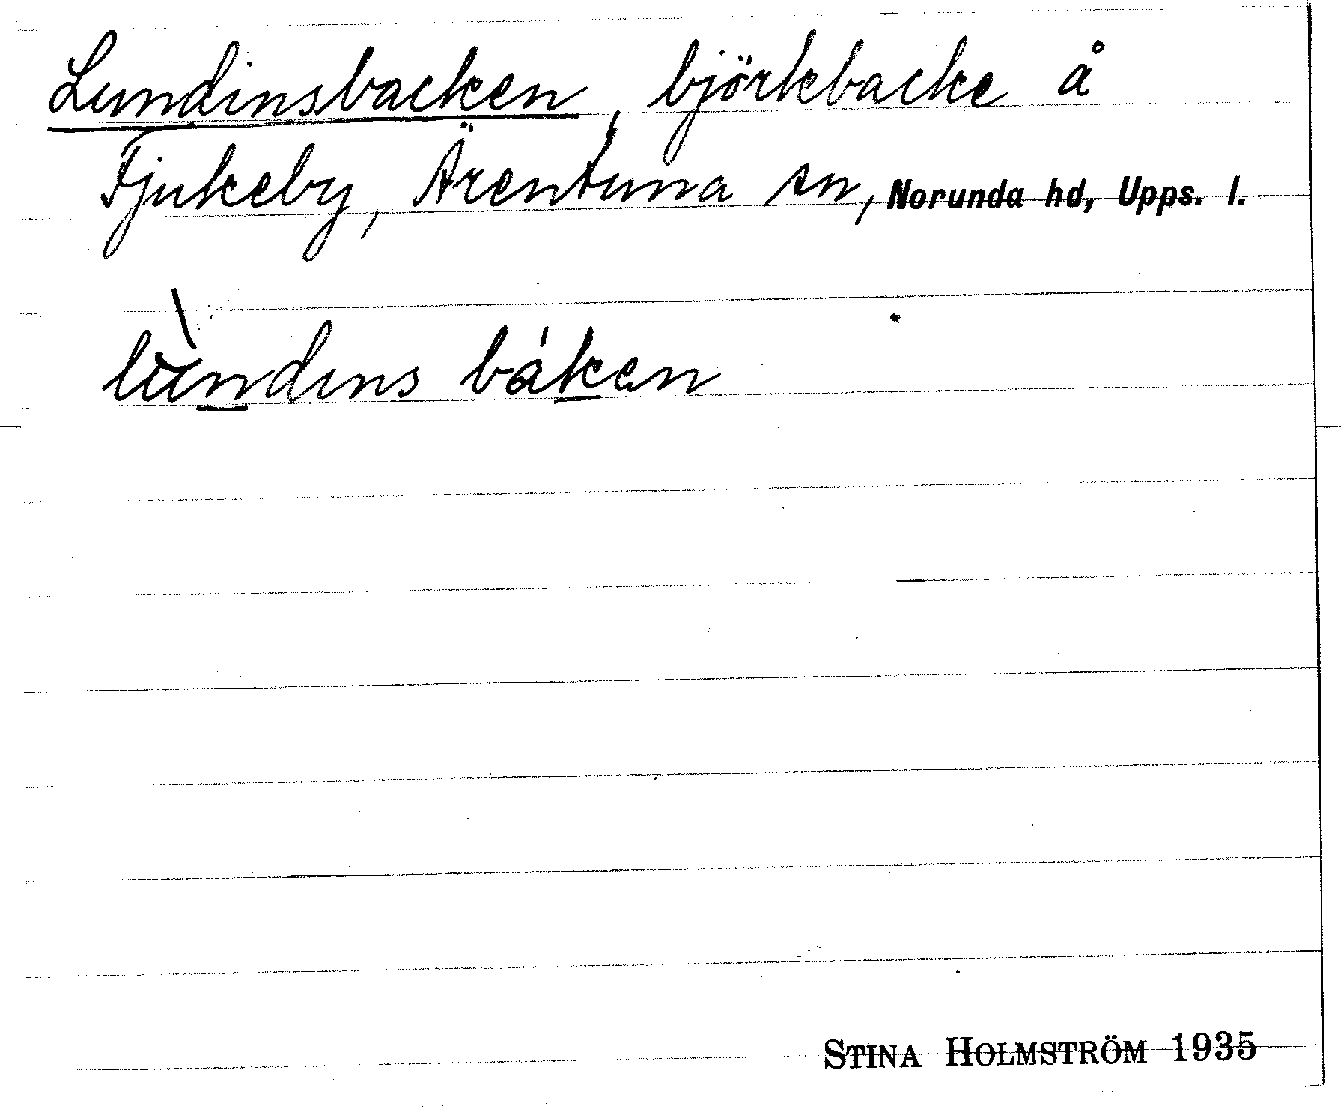 Lundinsbacken, björkbacke å
Fjukeby, Ärentuna sn, Norunda hd, Upps. l.
lùndins báken
STINA HOLMSTRÖM 1935